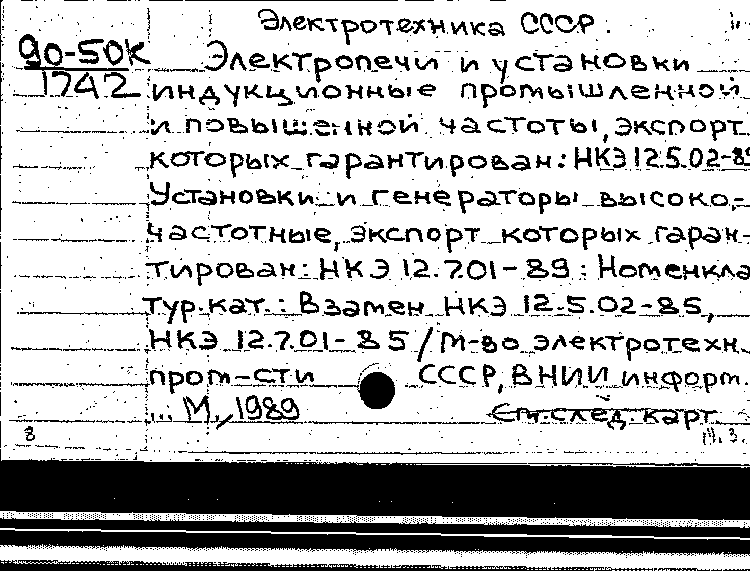 Электротехника СССР.
90-50К
1742
Электропечи и установки
индукционные промышленной
и повышенной частоты, экспорт
которых гарантирован: НКЭ 12.5.02-89
Установки и генераторы высоко-
частотные, экспорт которых гаран-
тирован: НКЭ 12.7.01-89: Номенкла
тур. кат.: Взамен НКЭ 12.5.02-85,
НКЭ 12.7.01-85 / М-во электротехн.
пром-сти СССР, ВНИИ информ.
... М., 1989
См. след. карт.
8